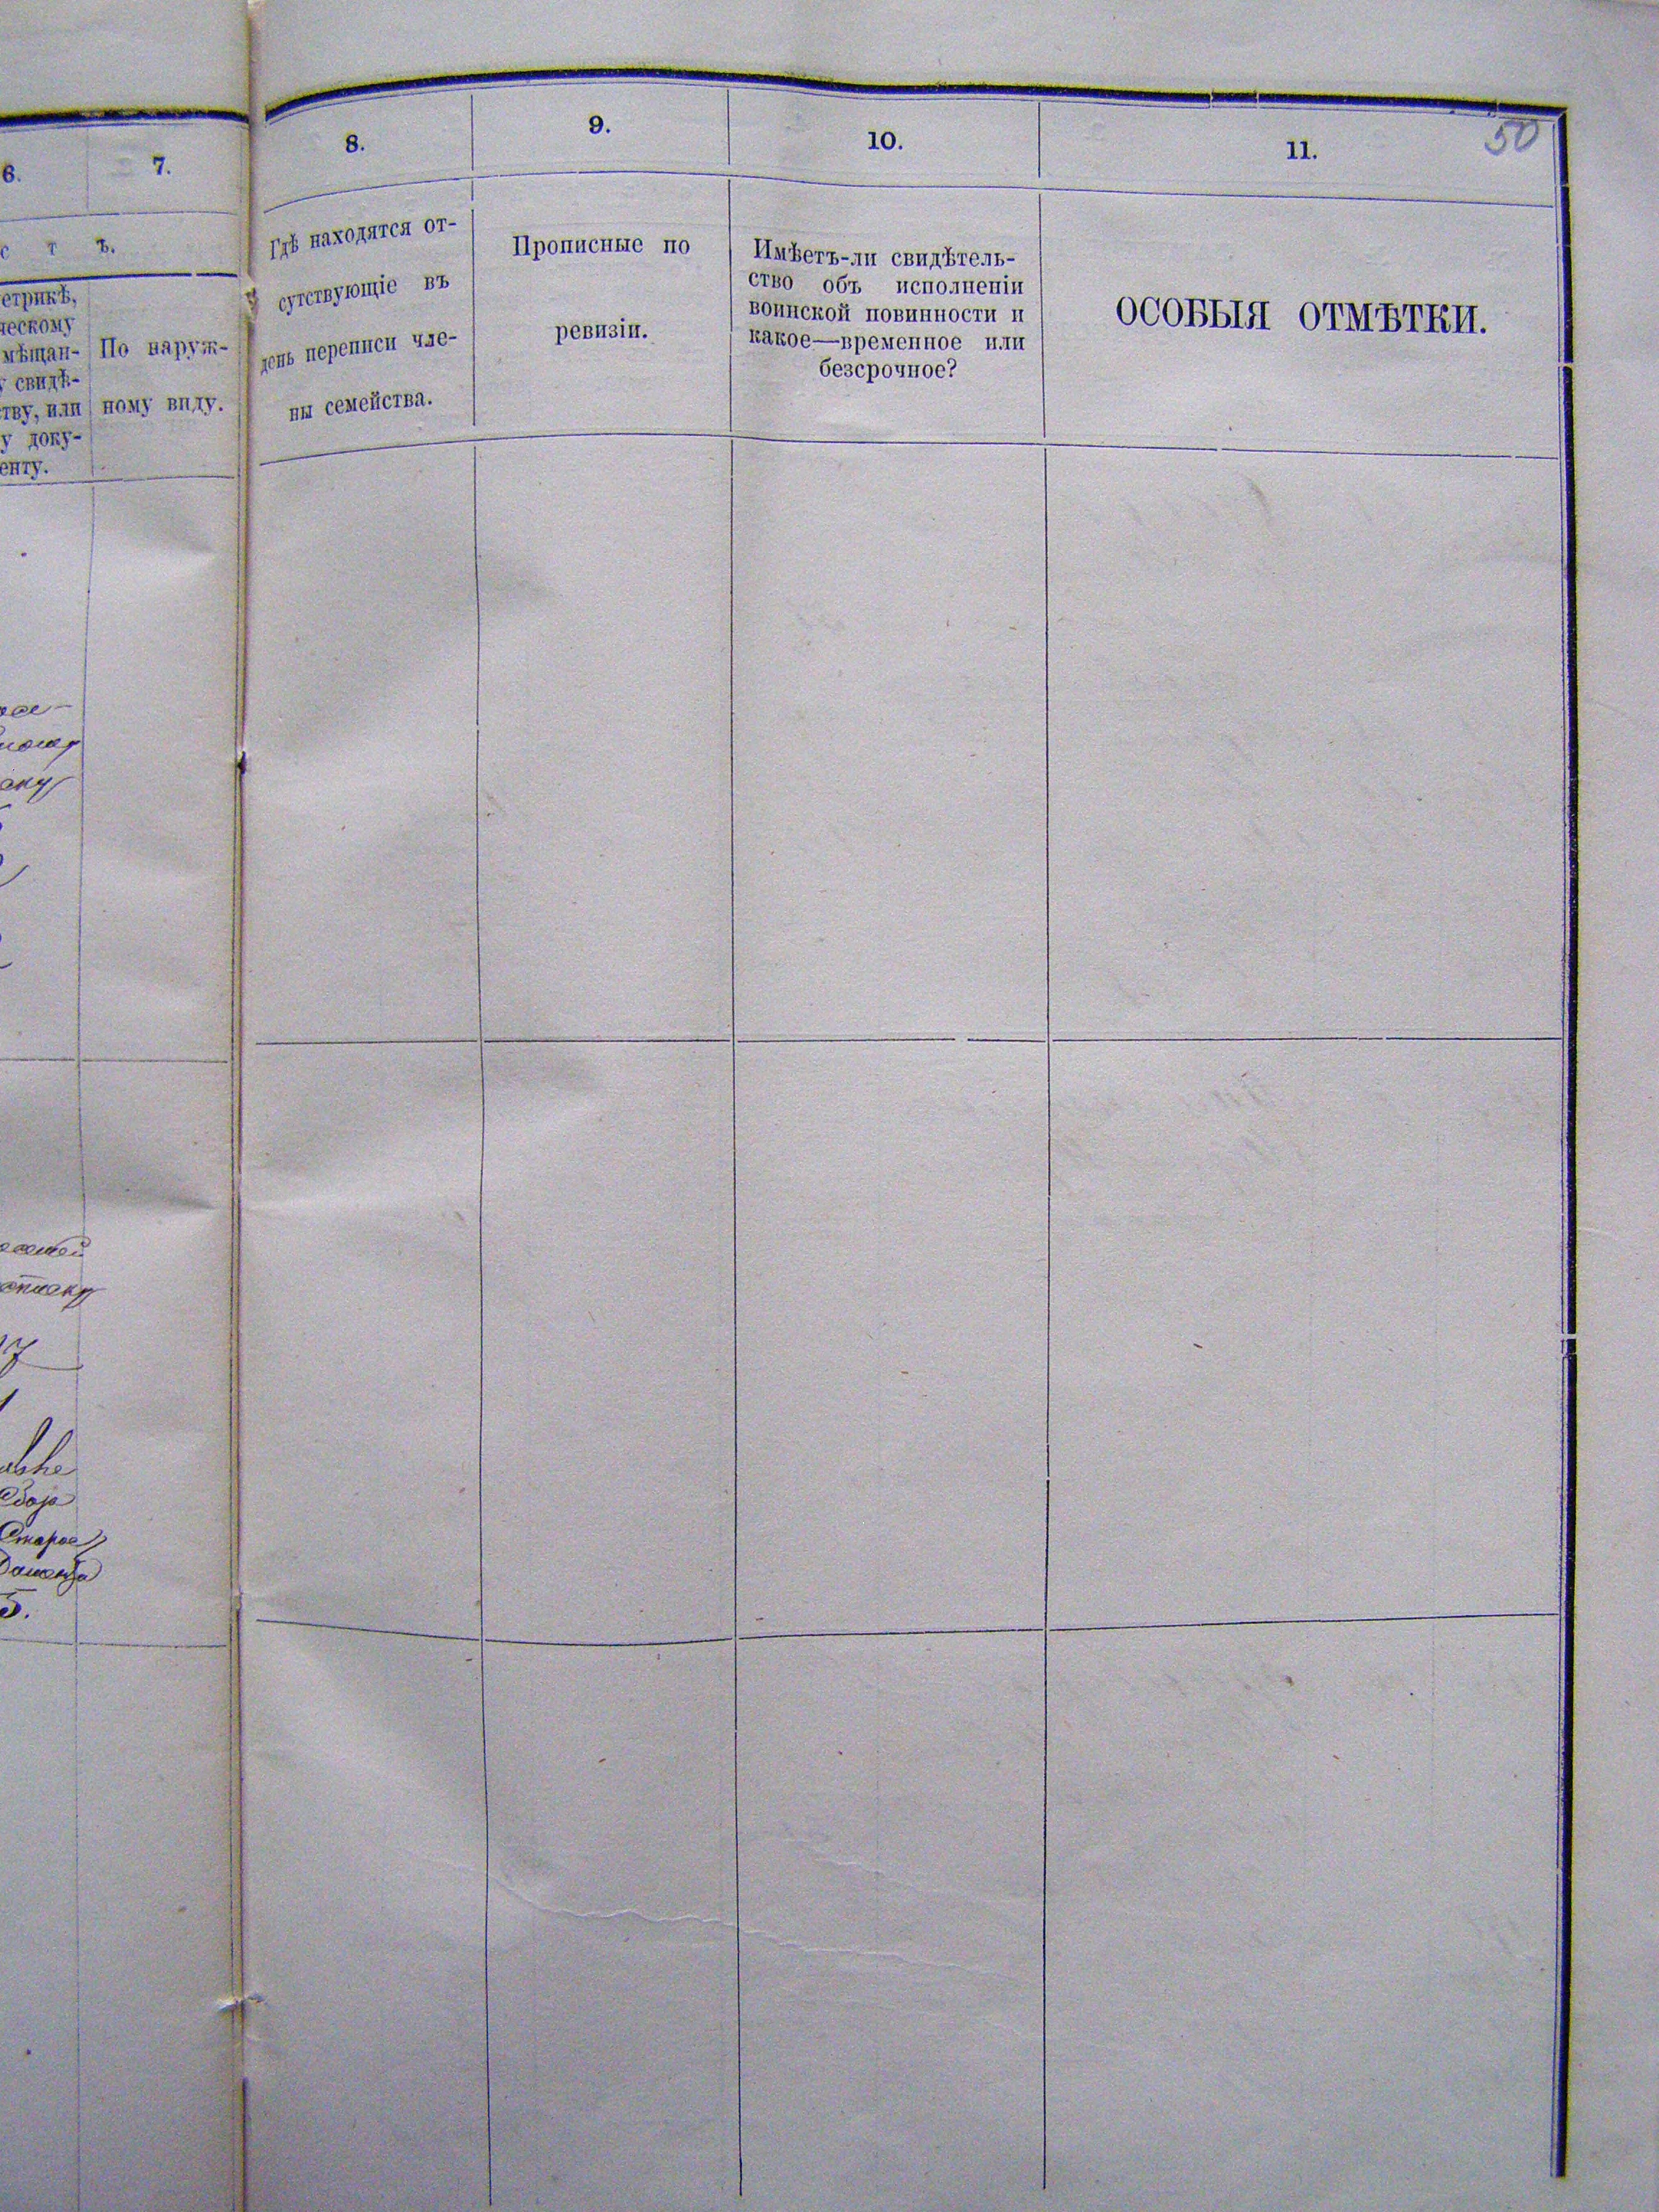 50
6.
7.
8.
9.
10.
11.
с т ъ.
етрикѣ,
ческому
мѣщан-
у свидѣ-
тву, или
у доку-
енту.
По наруж-
ному виду.
Гдѣ находятся от-
сутствующіе въ
день переписи чле-
ны семейства.
Прописные по
ревизіи.
Имѣетъ-ли свидѣтель-
ство объ исполненіи
воинской повинности и
какое—временное или
безсрочное?
ОСОБЫЯ ОТМѢТКИ.
Старое
5.